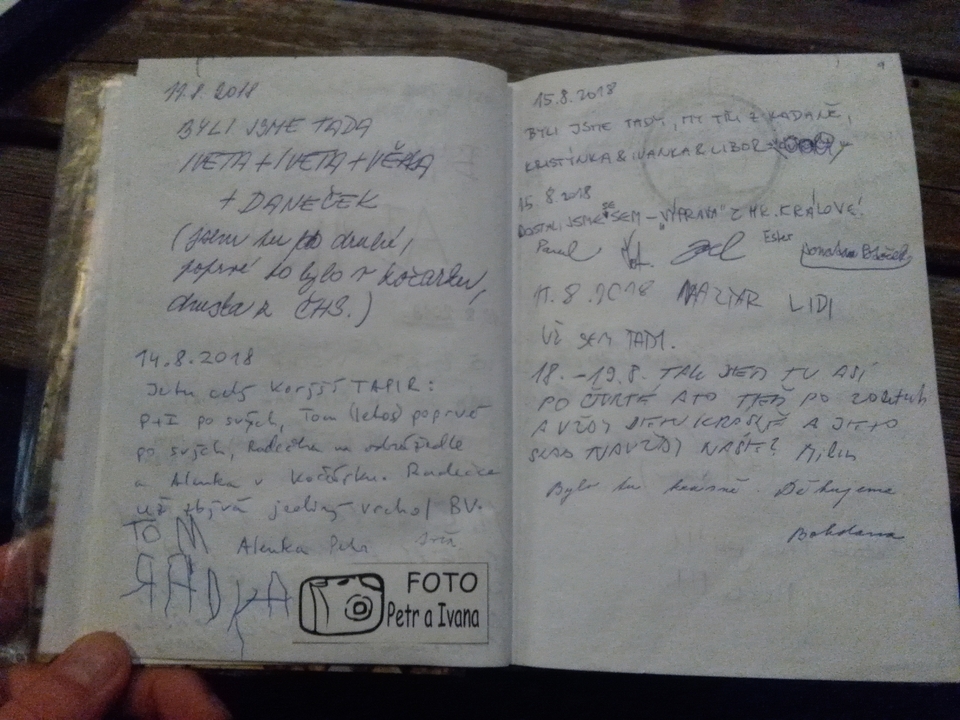 11.8.2018
BYLI JSME TADA
IVETA + IVETA + VĚRA
+ DANEČEK
(jsem tu po druhé,
poprvé to bylo v kočárku,
14.8.2018
Jsme celý TAPIR:
P+I po svých, Tom (letos) poprvé
po svých, Radečka na odrážedle
a Alenka v kočárku. Radečce
už zbývá jediný vrchol BV.
TOM
Alenka Petr
RADKA
FOTO
Petr a Ivana
15.8.2018
BYLI JSME TADY, MY TŘI Z KADANĚ,
KRISTÝNKA & IVANKA & LIBOR
15.8.2018
DOSTALI JSME SE SEM – "VÝPRAVA" Z HR. KRÁLOVÉ!
Pavel
Ester
8.2018 LIDI
UŽ SEM TAM.
18.–19.8. TAK JSEM TU ASI
PO ČTVRTÉ A TO TEĎ PO
A VŽDY JE TU KRÁSNĚ A JE TO
SNAD NAVŽDY NAŠTĚ? Milan
Bylo tu krásně. Děkujeme
Bohdana